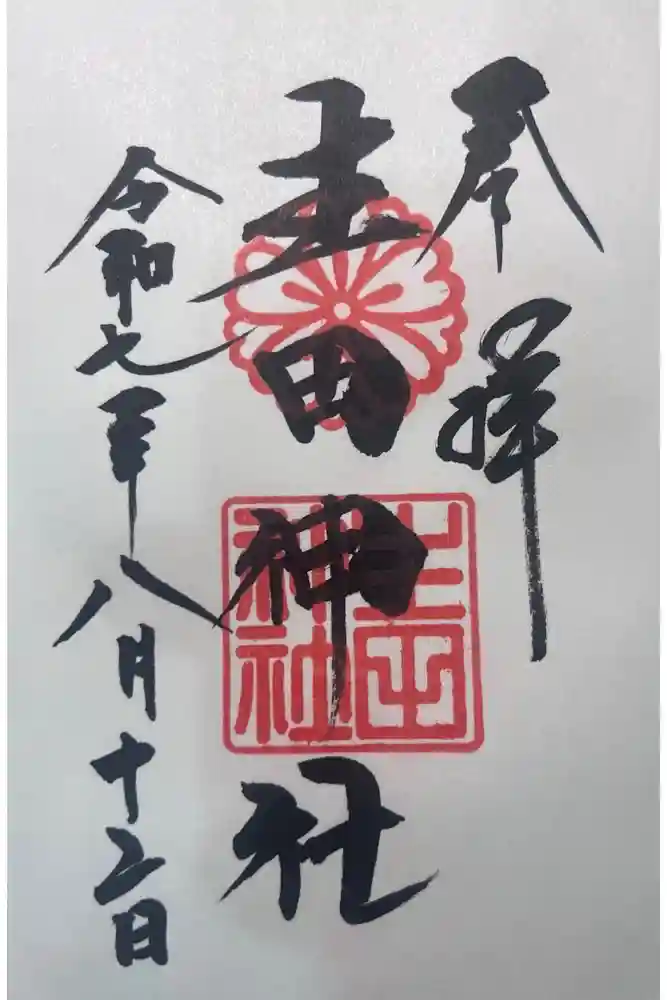 奉拝
生田神社
神社
令和七年八月十二日